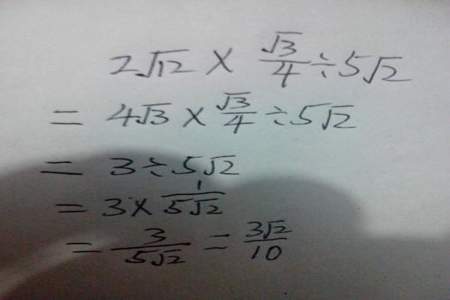 2√12 × √3/4 ÷ 5√2
= 4√3 × √3/4 ÷ 5√2
= 3 ÷ 5√2
= 3 × 1/5√2
= 3/5√2 = 3√2/10